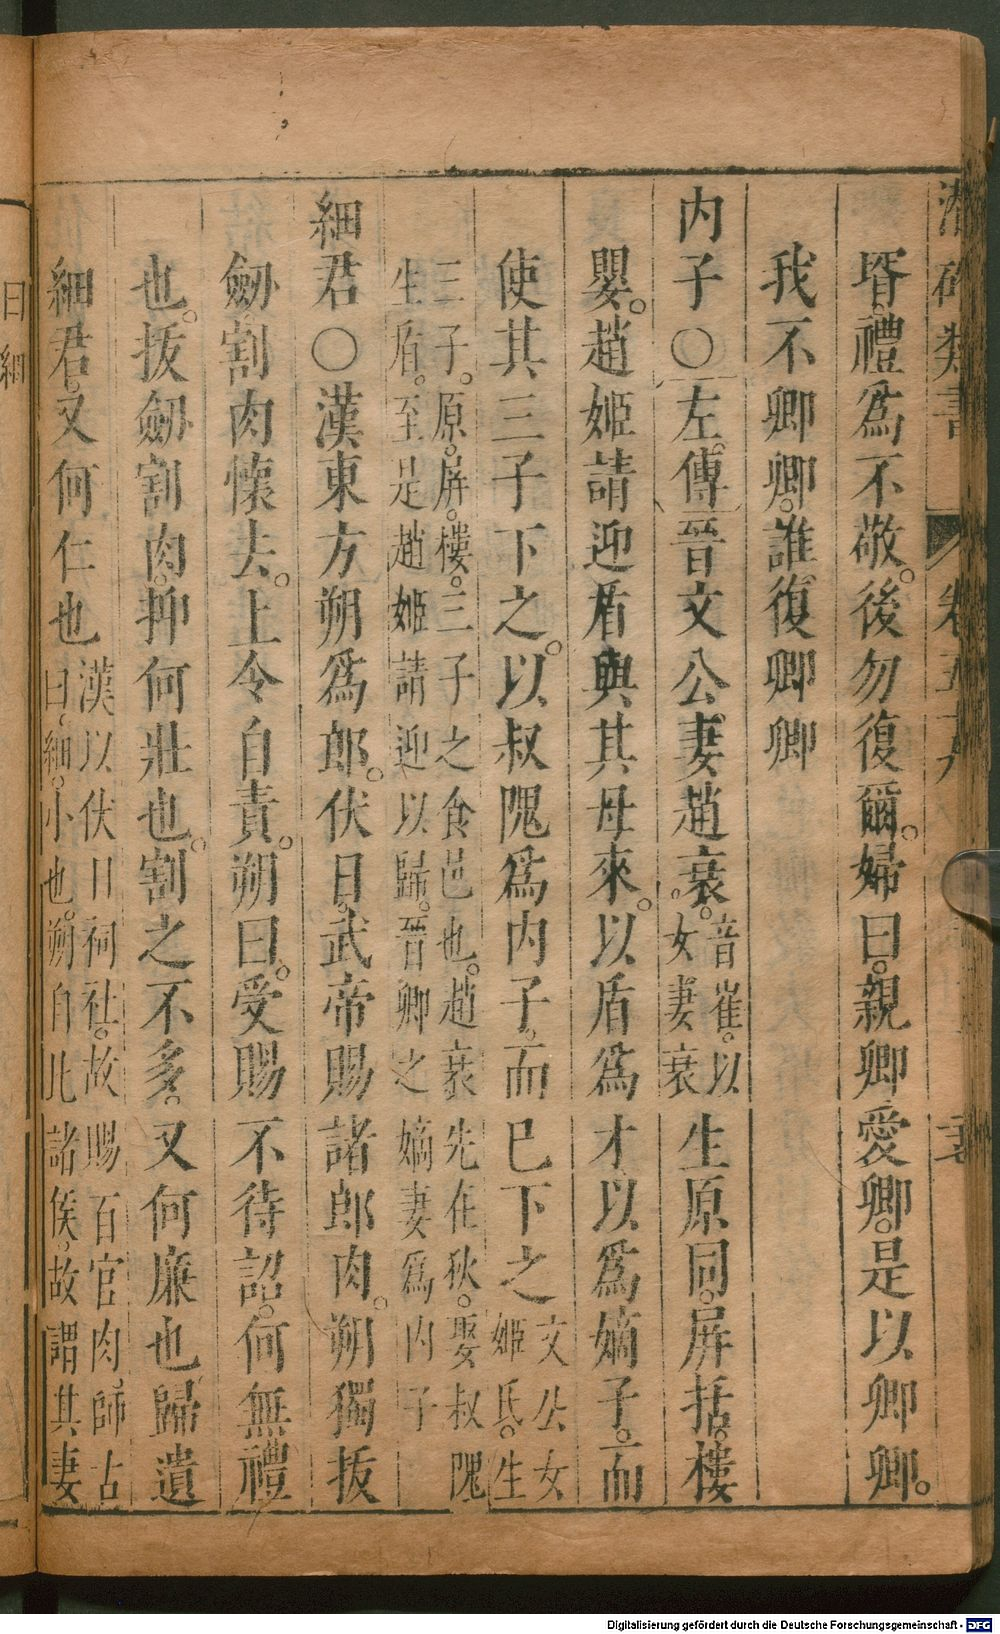 潛確類書　卷五十九
壻。禮爲不敬。後勿復爾。婦曰。親卿愛卿。是以卿卿。
我不卿卿。誰復卿卿
內子○左傳。晉文公妻趙衰。音崔。以女妻衰生原同。屏括。樓
嬰。趙姬請迎盾與其母來。以盾爲才以爲嫡子。而
使其三子下之。以叔隗爲內子。而已下之文公女姬氏。生
三子。原。屏。樓。三子之食邑也。趙衰先在狄。娶叔隗
生盾。至是趙姬請迎以歸。晉卿之嫡妻爲內子
細君○漢東方朔爲郎。伏日。武帝賜諸郎肉。朔獨拔
劒割肉懷去。上令自責。朔曰。受賜不待詔。何無禮
也。拔劒割肉。抑何壯也。割之不多。又何廉也歸遺
細君。又何仁也漢以伏日祠社。故賜百官肉。師古
曰。細。小也。朔自比諸侯。故謂其妻
曰細
Digitalisierung gefördert durch die Deutsche Forschungsgemeinschaft - DFG